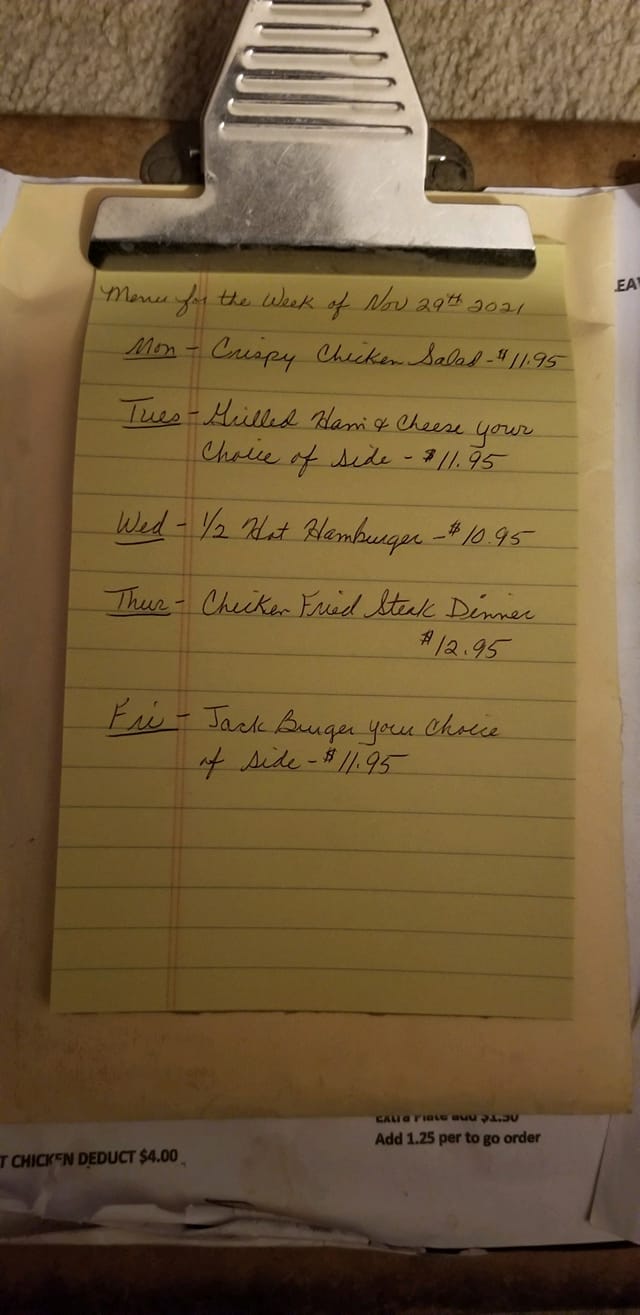 Menu for the Week of Nov 29th 2021
Mon - Crispy Chicken Salad - $11.95
Tues - Grilled Ham & Cheese your
Choice of side - $11.95
Wed - 1/2 Hot Hamburger - $10.95
Thur - Chicken Fried Steak Dinner
$12.95
Fri - Jack Burger your Choice
of side - $11.95
Extra Plate add $1.50
Add 1.25 per to go order
T CHICKEN DEDUCT $4.00